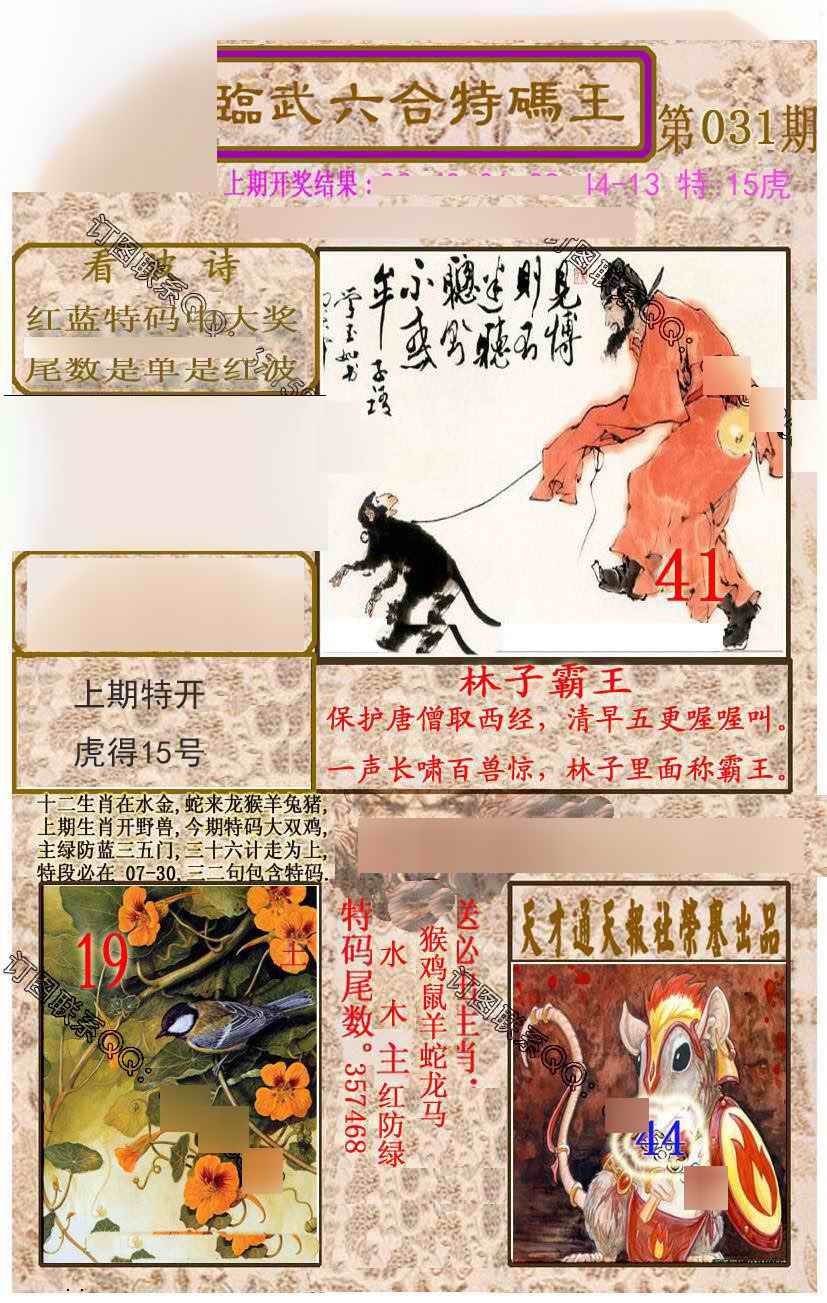 臨武六合特碼王
第031期
上期开奖结果：
14-13 特 15虎
看波诗
红蓝特码中大奖
尾数是单是红波
見博
則不
迷聽
聰
不惑
牟子語
41
上期特开
虎得15号
林子霸王
保护唐僧取西经，清早五更喔喔叫。
一声长啸百兽惊，林子里面称霸王。
十二生肖在水金,蛇来龙猴羊兔猪,
上期生肖开野兽,今期特码大双鸡,
主绿防蓝三五门,三十六计走为上,
特段必在 07-30.三二句包含特码.
19
土
订图联系QQ:
订图联系QQ:
订图联系QQ:
订图联系QQ:
送必出主肖：
猴鸡鼠羊蛇龙马
水木主红防绿
特码尾数。357468
天才通天報社榮譽出品
44